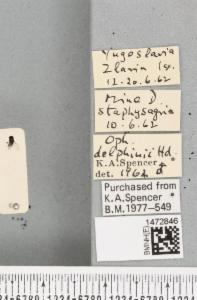 Yugoslavia
Zlarin Is.
12-20.6.62
Mine D
staphysagria
10.6.62
Oph
delphinii Hd.
K.A.Spencer
det. 1962 ♂
Purchased from
K.A.Spencer
B.M.1977–549
BMNH(E)
1472846